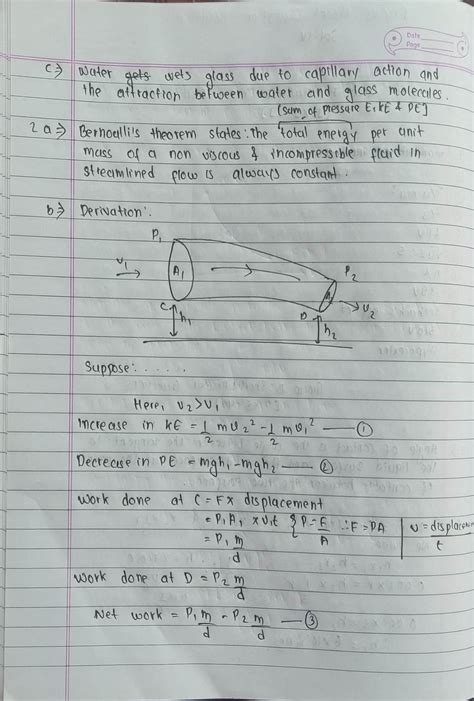 Date
Page
c⇒ Water gets wets glass due to capillary action and
the attraction between water and glass molecules.
(sum of pressure E, KE & PE]
2 a⇒ Bernoulli's theorem states: the total energy per unit
mass of a non viscous & incompressible fluid in
streamlined flow is always constant.
b⇒ Derivation:
P₁
v₁
A₁
P₂
A₂
v₂
C
D
h₁
h₂
Suppose: . . . . . .
Here, v₂>v₁
Increase in KE = 1/2 m v₂² - 1/2 m v₁² —— ①
Decrease in PE = mgh₁ - mgh₂ —— ②
Work done at C = F x displacement
= P₁A₁ x v₁t { P = F/A ∴ F = PA | v = displacement/t
= P₁ m/d
Work done at D = P₂ m/d
Net work = P₁ m/d - P₂ m/d —— ③